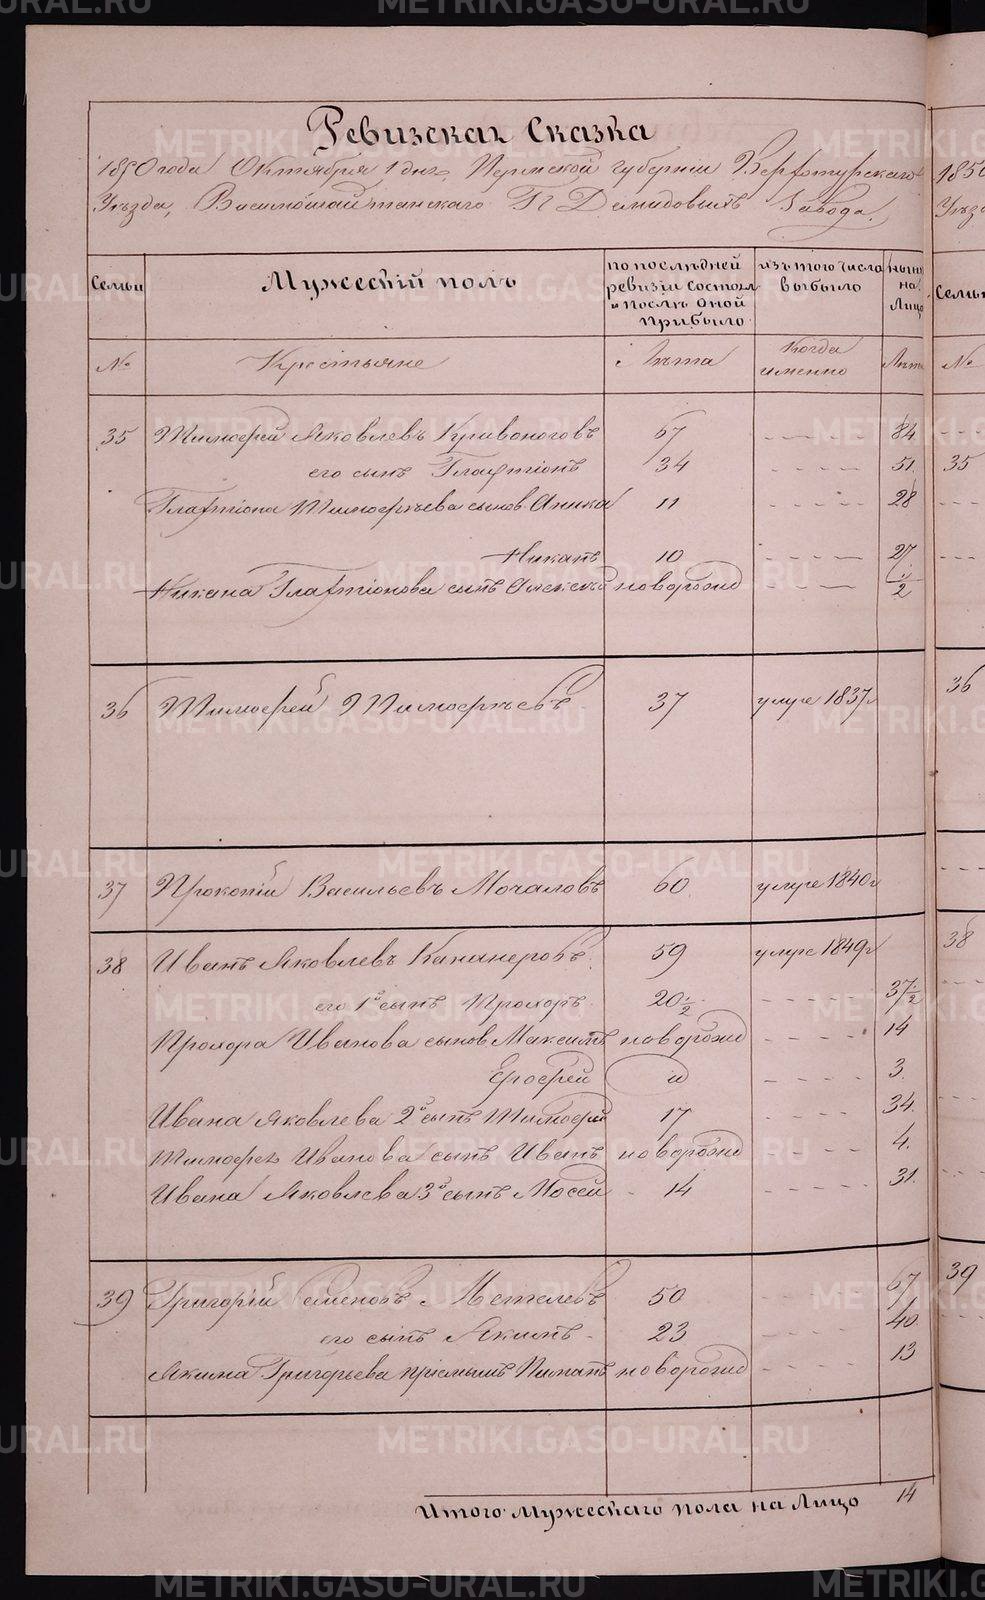 METRIKI.GASO-URAL.RU
Ревизская Сказка
1850 года Октября 1 дня, Пермской губернии Верхотурскаго
Уѣзда, Висимошайтанскаго Г.Г. Демидовыхъ Завода.
Семьи
Мужескій полъ
по послѣдней ревизіи состояло и послѣ оной прибыло
изъ того числа выбыло
нынѣ на Лицо
№
Крестьяне
Лѣта
Когда именно
Лѣта
35 Тимофей Яковлевъ Кривоноговъ 67 - - - - 84.
его сынъ Глафтіонъ 34 - - - - 51.
Глафтіона Тимофѣева сынов. Аника 11 - - - - 28
Никанъ 10 - - - - 27
Никана Глафтіонова сынъ Алексѣй новорожд - - - 1/2
36 Тимофей Тимофѣевъ 37 умре 1837 г
37 Прокопій Васильевъ Мочаловъ 60 умре 1840 г
38 Иванъ Яковлевъ 59 умре 1849 г
его 1й сынъ Прохоръ 20 1/2 - - - - 37 1/2
Прохора Иванова сынов. Максимъ новорожд - - - - 14
Ерофей и - - - - 3.
Ивана Яковлева 2й сынъ Тимофей 17 - - - - 34.
Тимофея Иванова сынъ Иванъ новорожд - - - - 4.
Ивана Яковлева 3й сынъ Мосей 14 - - - - 31.
39 Григорій Семеновъ Метелевъ 50 - - - - 67
его сынъ Якимъ 23 - - - - 40.
Якима Григорьева пріемышъ новорожд - - - - 13
Итого Мужескаго пола на Лицо 14
1850
Уѣз
Семьи
№
35
36
38
39